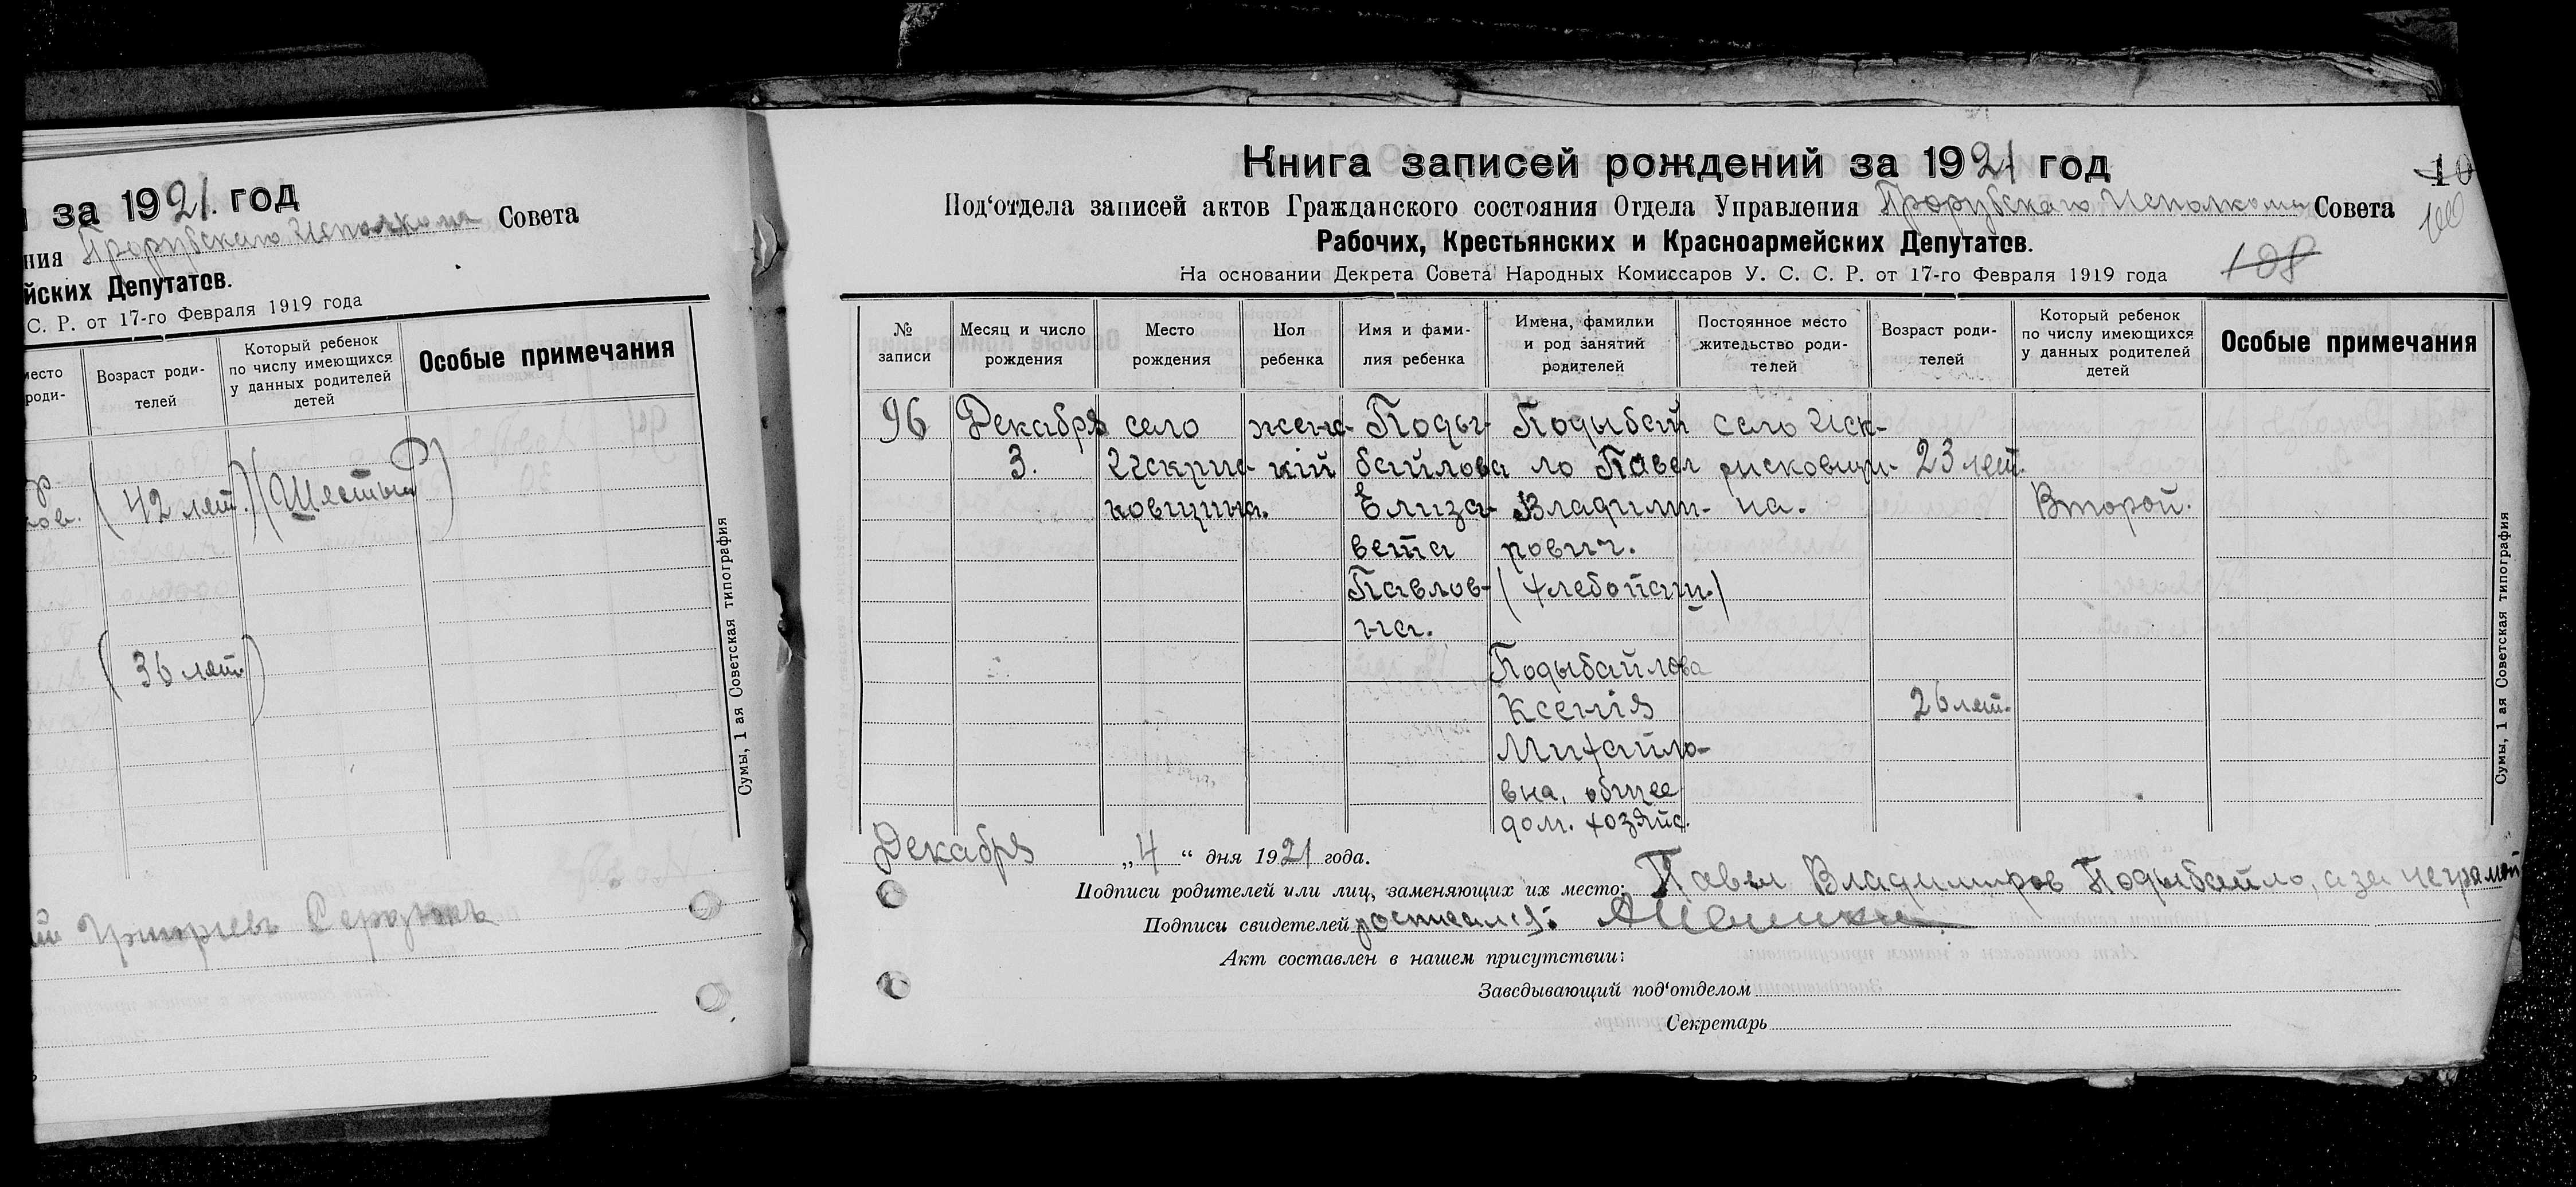 за 1921. год
ния Прорубскаго Исполкома Совета
йских Депутатов.
С. Р. от 17-го Февраля 1919 года
место роди-
Возраст роди-
телей
Который ребенок
по числу имеющихся
у данных родителей
детей
Особые примечания
(42 лет.) (Шестый)
(36 лет)
Григориевъ Сердюкъ
Сумы, 1 ая Советская типография
Книга записей рождений за 1921 год
10
Под'отдела записей актов Гражданского состояния Отдела Управления Прорубскаго Исполкома Совета
100
Рабочих, Крестьянских и Красноармейских Депутатов.
На основании Декрета Совета Народных Комиссаров У. С. С. Р. от 17-го Февраля 1919 года
108
№
записи
Месяц и число
рождения
Место
рождения
Пол
ребенка
Имя и фами-
лия ребенка
Имена, фамилии
и род занятий
родителей
Постоянное место
жительство роди-
телей
Возраст роди-
телей
Который ребенок
по числу имеющихся
у данных родителей
детей
Особые примечания
96 Декабря село женс- Поды- Подыбай село Иск-
3. Искрис- кій байлова ло Павел рисковщи- 23 лет.
ковщина. Елиза- Владими- на. Второй.
вета рович.
Павлов- (Хлебопаш.)
на.
Подыбайлова
Ксенія 26 лет.
Михайло-
вна, общее
дом. хозяйс.
Декабря „4“ дня 1921 года.
Подписи родителей или лиц, заменяющих их место: Павел Владимиров Подыбайло, а за неграмот
Подписи свидетелей росписался:
Акт составлен в нашем присутствии:
Заведывающий под'отделом
Секретарь
Сумы, 1 ая Советская типография